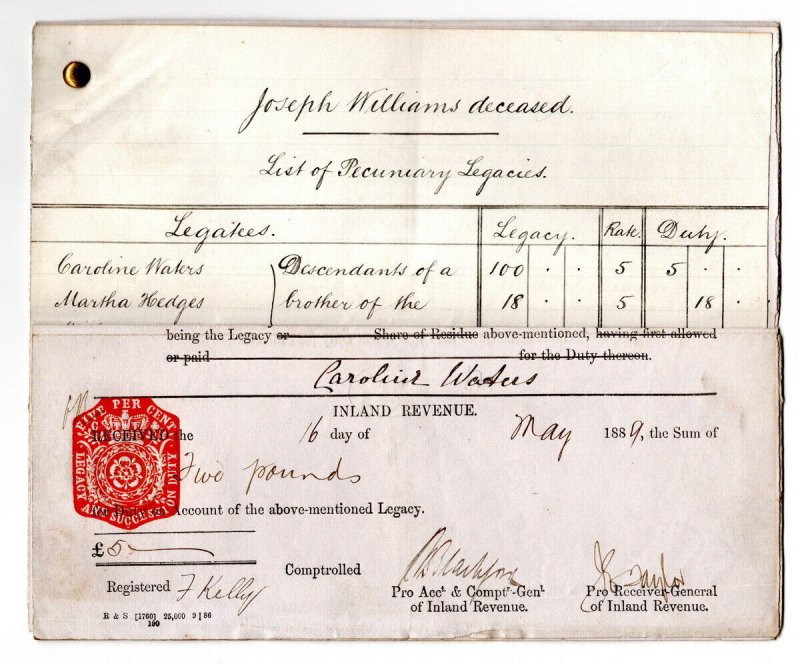 Joseph Williams deceased.
List of Pecuniary Legacies.
Legatees. Legacy. Rate. Duty.
Caroline Waters Descendants of a 100 . . 5 5 . .
Martha Hedges brother of the 18 . . 5 18 .
being the Legacy or Share of Residue above-mentioned, having first allowed
or paid for the Duty thereon.
Caroline Waters
INLAND REVENUE.
FIVE PER CENT
LEGACY AND SUCCESSION DUTY
RECEIVED the 16 day of May 1889, the Sum of
Five pounds
for Duty on Account of the above-mentioned Legacy.
£5
Registered F Kelly Comptrolled
Pro Acct & Comptr-Genl
of Inland Revenue.
Taylor
Pro Receiver-General
of Inland Revenue.
R & S [1760] 25,000 9 | 86
190